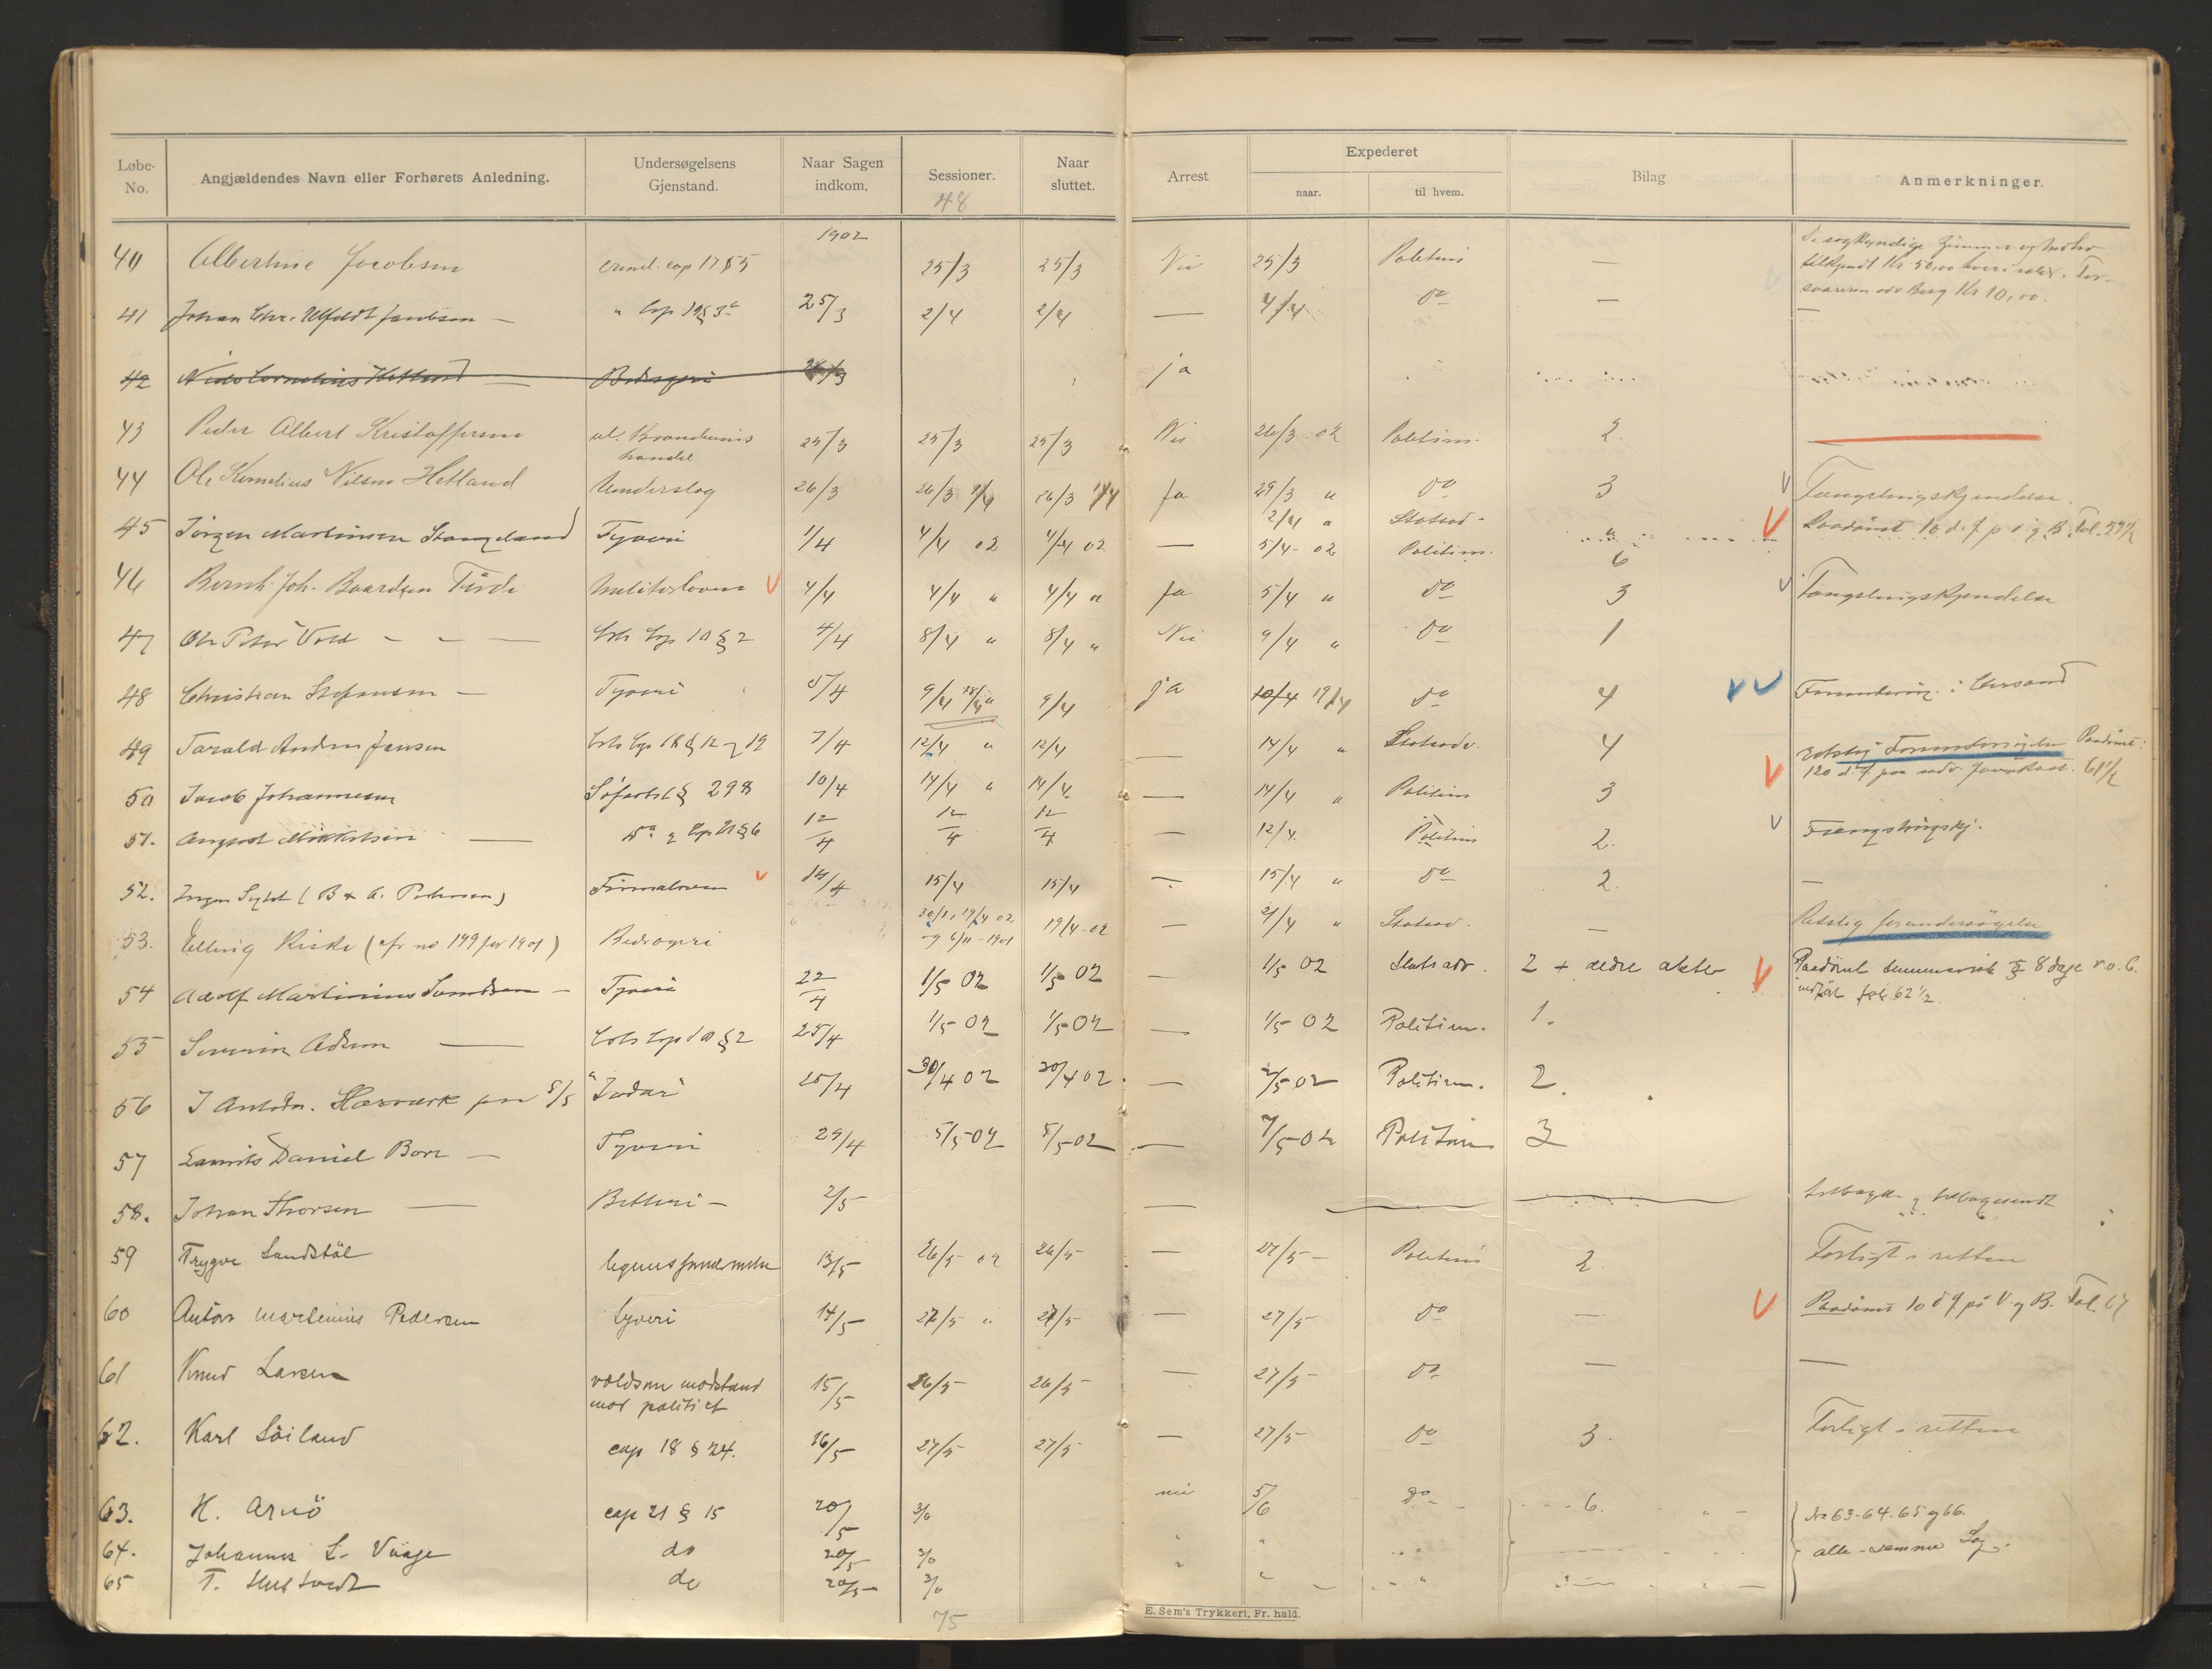 Løbe-No. Angjældendes Navn eller Forhørets Anledning. Undersøgelsens Gjenstand. Naar Sagen indkom. Sessioner. Naar sluttet. Arrest Expederet naar. til hvem. Bilag Anmerkninger.
48
1902
40 Albertine Jacobsen cap 17 § 5 25/3 25/3 Nei 25/3 Politim —
tilkjendt Kr. 50,00 hver
Berg Kr 10,00.
41 Johan Chr. Jacobsen — " Cap 19 § 25/3 2/4 2/4 — 4/4 do —
42 Niels Cornelius Hetland — Bedrageri 26/3 ja
43 Peder Albert Kristoffersen ul. Brændevins handel 25/3 25/3 25/3 Nei 26/3 02 Politim. 2.
44 Ole Kornelius Nilsen Hetland Underslag 26/3 26/3 26/3 Ja 29/3 " do 3 Fængslingskjendelse.
2/4 " Statsad-
45 Jörgen Martinsen Stangeland Tyveri 1/4 4/4 02 4/4 02 — 5/4-02 Politim. 6 Paadömt 10 d. f. p. v. og B. Fol. 59 1/2
46 Bernh. Joh. Baardsen Förde Militærloven 4/4 4/4 " 4/4 " Ja 5/4 " do 3 Fængslingskjendelse
47 Ole Peter Vold — — — Crl. Cap 10 § 2 4/4 8/4 " 8/4 " Nei 9/4 " do 1
48 Christian Stefansen — Tyveri 5/4 9/4 18/4 " 9/4 ja 10/4 19/4 do 4 i Chrsand
49 Tarald Andreas Jansen Crl. Cap 18 § 12 og 19 7/4 12/4 " 12/4 — 14/4 " Statsadv. 4 Retslig Forundersögelse Paadömt:
120 d. f. paa 61 1/2
50 Jacob Johannesen Söfartsl. § 298 10/4 14/4 " 14/4 — 14/4 " Politim 3
51. August Mikkelsen — do og Cap 21 § 6 12/4 12/4 12/4 — 12/4. Politim 2. Fængslingskj.
52. Ingen (B & A. Pedersen) Firmaloven 14/4 15/4 15/4 — 15/4 " do 2. —
53. Elling Riske (cfr no 199 for 1901) Bedrageri 30/1, 19/4 02 og 6/11-1901 19/4-02 — 21/4 " Statsad. — Retslig forundersögelse
54 Adolf Martinius — Tyveri 22/4 1/5 02 1/5 02 1/5 02 Statsadv. 2 + ældre akter Paadömt 8 dage
fol. 62 1/2.
55 Severin — Crl. Cap 10 § 2 25/4 1/5-02 1/5-02 — 1/5 02 Politim. 1.
56 Hærværk paa S/S "Jadar" 25/4 30/4 02 30/4 02. — 2/5-02 Politim. 2.
57 Lauritz Daniel Bore — Tyveri 29/4 5/5-02 5/5-02 — 7/5-02 Politim 3
58. Johan Thorsen — Betleri — 2/5 — tilbagesendt
59 Trygve Sandstöl legemsfornærmelse 13/5 26/5-02 26/5 — 27/5- Politim 2 Forligt i retten
60 Anton Martinius Pedersen tyveri 14/5 27/5 " 27/5 — 27/5 do — Paadömt 10 d f på V. og B. Fol. 67
61 Knud Larsen voldsom modstand mod politiet 15/5 26/5 26/5 — 27/5 do — —
62. Karl Söiland cap 18 § 24. 16/5 27/5 27/5 — 27/5 do 3. Forligt i retten
63. H. Arnö cap 21 § 15 20/5 3/6 nei 5/6 do 6. No 63-64-65 og 66.
64. Johannes L. Vaage do 20/5 3/6 " " " alle samme Sag.
65 T. do 20/5 3/6 " " "
75
E. Sem's Trykkeri, Fr. hald.